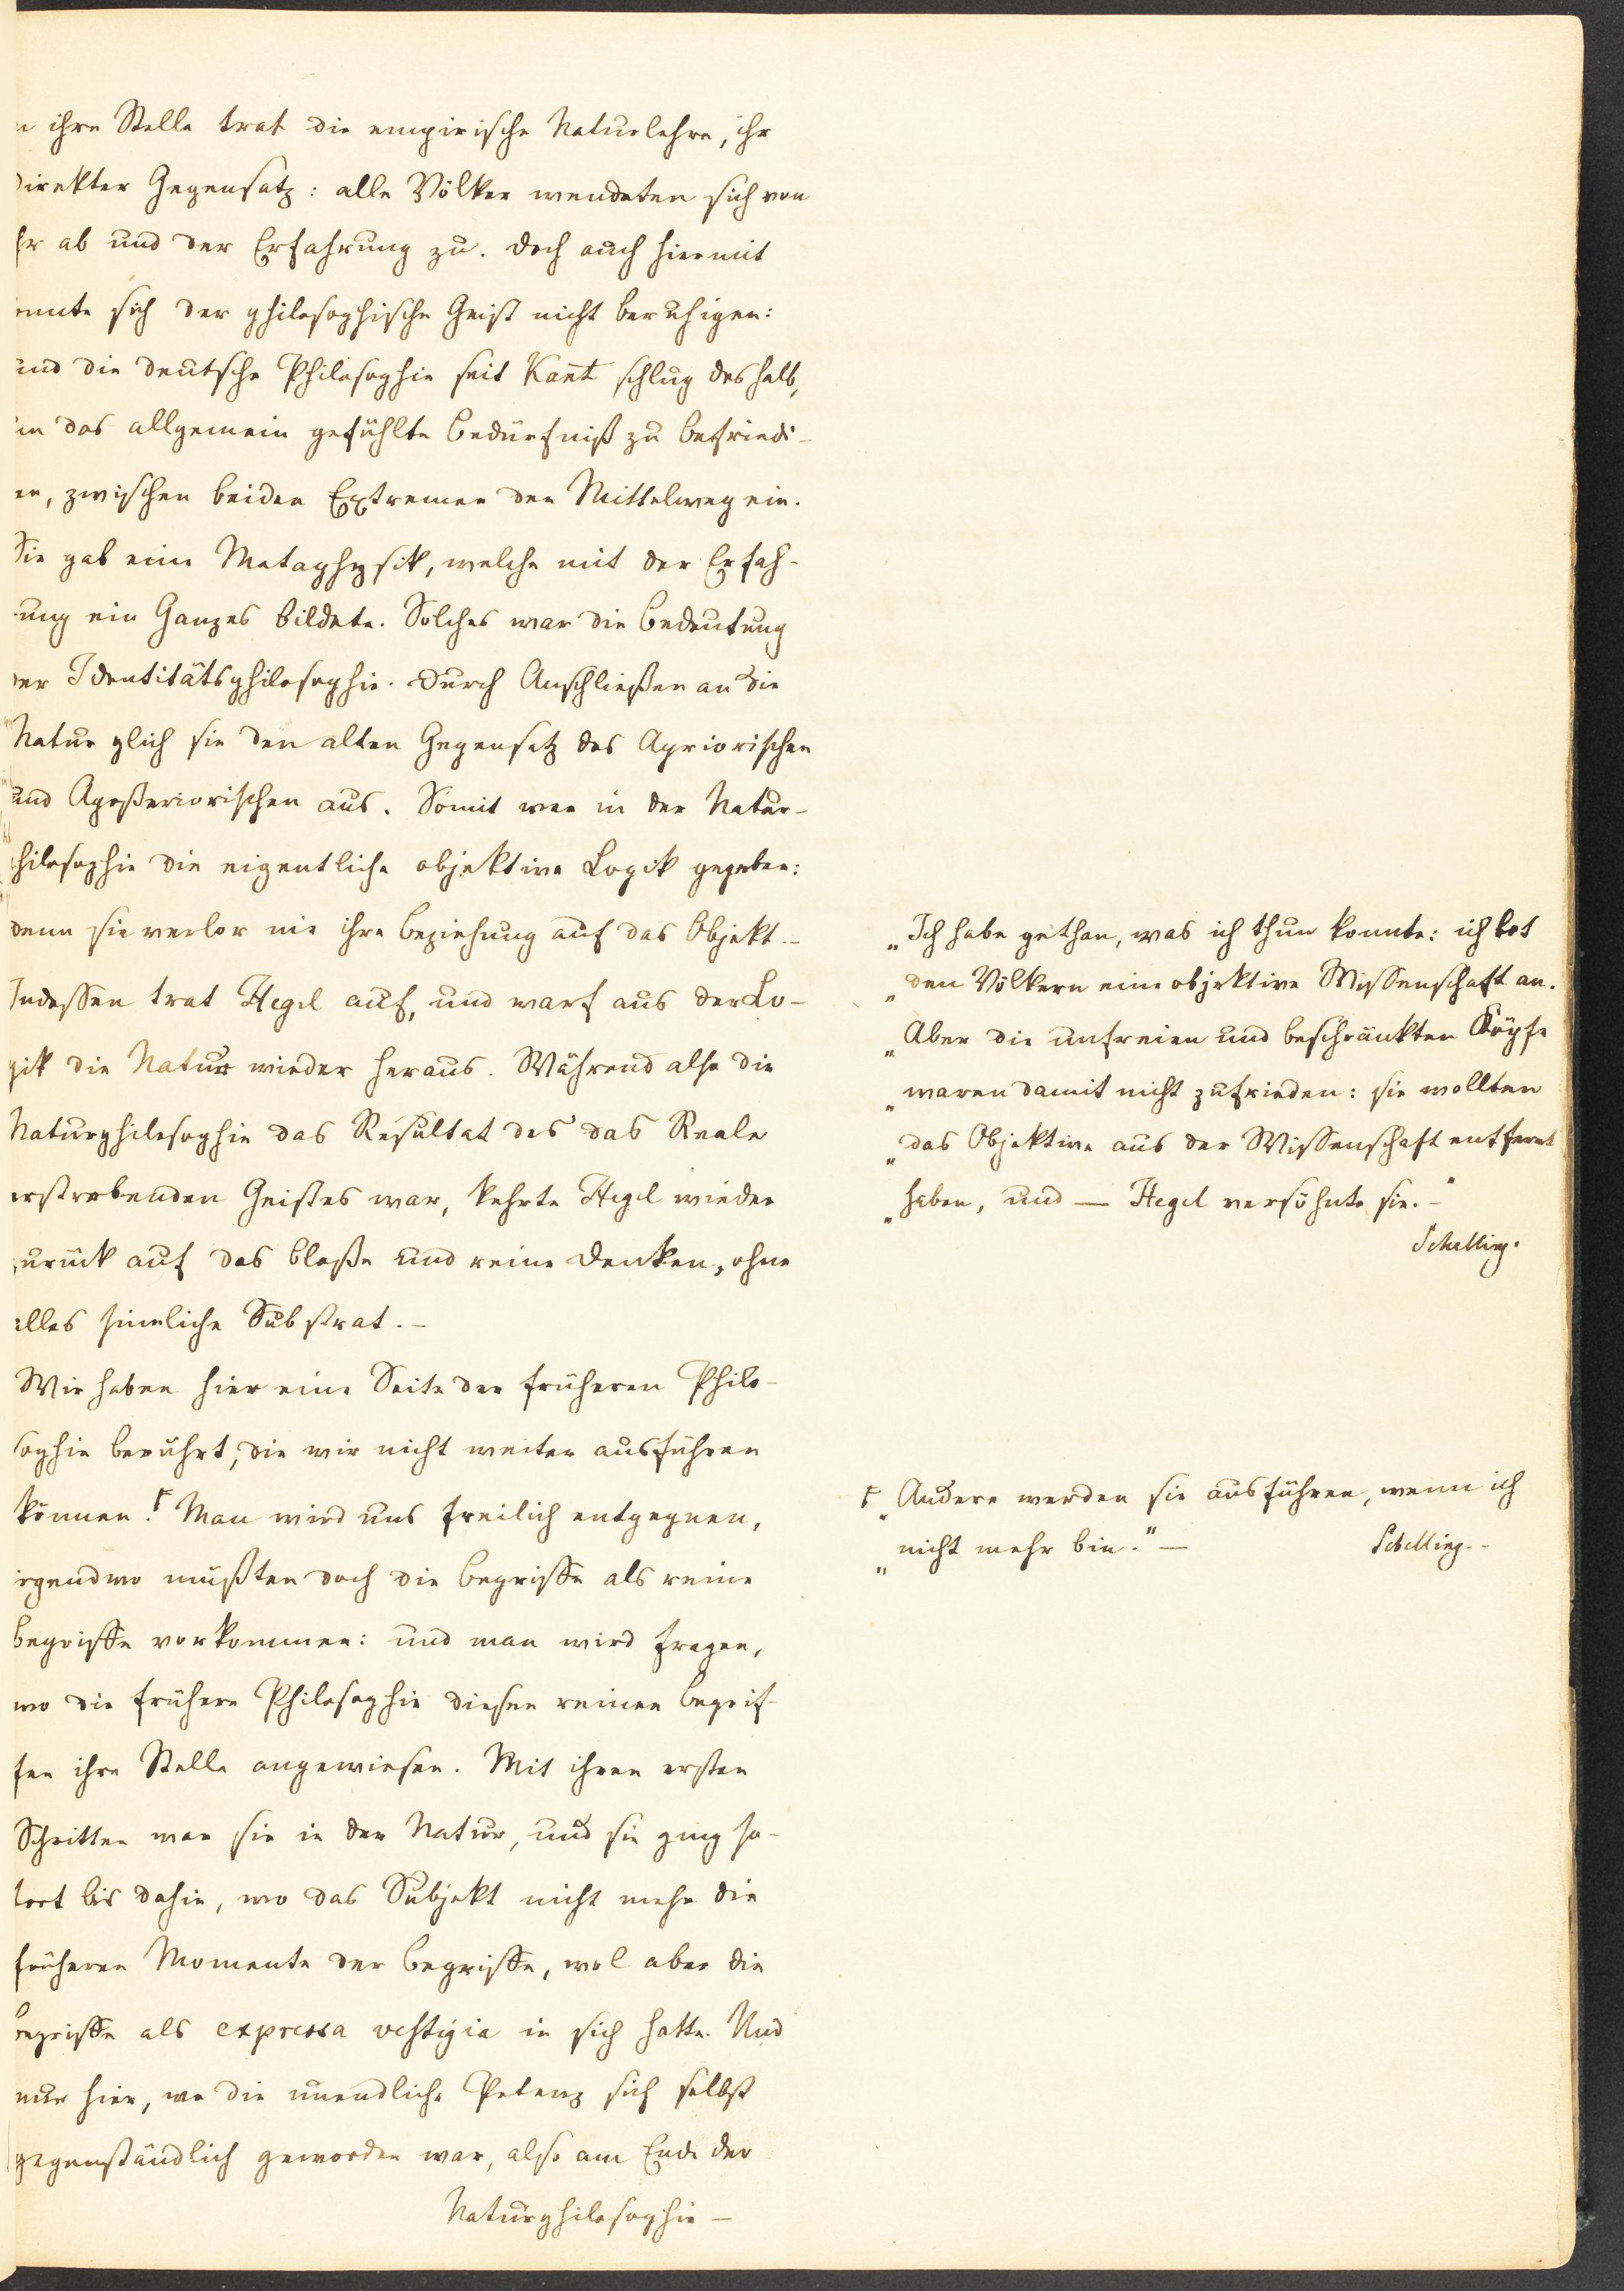 n ihre Stelle trat die empirische Naturlehre, ihr
direkter Gegensatz: alle Völker wendeten sich von
hr ab und der Erfahrung zu. Doch auch hiermit
onnte sich der philosophische Geist nicht beruhigen:
und die deutsche Philosophie seit Kant schlug deshalb,
um das allgemein gefühlte Bedürfniß zu befriedi-
en, zwischen beiden Extremen den Mittelweg ein.
Sie gab eine Metaphysik, welche mit der Erfah-
rung ein Ganzes bildete. Solches war die Bedeutung
der Identitätsphilosophie. Durch Anschließen an die
Natur glich sie den alten Gegensatz des Apriorischen
und Aposteriorischen aus. Somit war in der Natur-
philosophie die eigentliche objektive Logik gegeben:
denn sie verlor nie ihre Beziehung auf das Objekt.-
Indessen trat Hegel auf, und warf aus der Lo-
gik die Natur wieder heraus. Während also die
Naturphilosophie das Resultat des das Reale
erstrebenden Geistes war, kehrte Hegel wieder
zurück auf das bloße und reine Denken, ohne
alles sinnliche Substrat.-
Wir haben hier eine Seite der früheren Philo-
sophie berührt, die wir nicht weiter ausführen
können.Ƒ Man wird uns freilich entgegnen,
irgendwo müßten doch die Begriffe als reine
Begriffe vorkommen: und man wird fragen,
wo die frühere Philosophie diesen reinen Begrif-
fen ihre Stelle angewiesen. Mit ihren ersten
Schritten war sie in der Natur, und sie ging so-
fort bis dahin, wo das Subjekt nicht mehr die
früheren Momente der Begriffe, wol aber die
Begriffe als expressa vestigia in sich hatte. Und
nur hier, wo die unendliche Potenz sich selbst
gegenständlich geworden war, also am Ende der
Naturphilosophie -
„Ich habe gethan, was ich thun konnte: ich bot
„den Völkern eine objektive Wissenschaft an.
„Aber die unfreien und beschränkten Köpfe
„waren damit nicht zufrieden: sie wollten
„das Objektive aus der Wissenschaft entfernt
„haben, und — Hegel versöhnte sie.-"
Schelling.
Ƒ „Andere werden sie ausführen, wenn ich
„nicht mehr bin." — Schelling.-